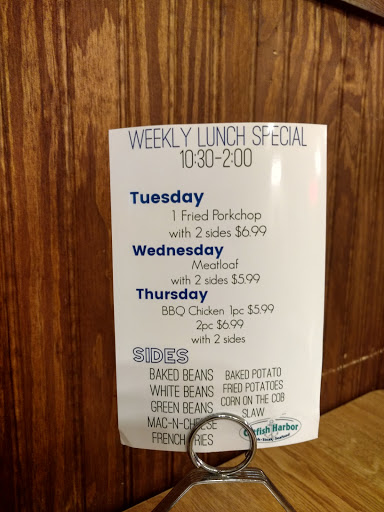 WEEKLY LUNCH SPECIAL
10:30-2:00
Tuesday
1 Fried Porkchop
with 2 sides $6.99
Wednesday
Meatloaf
with 2 sides $5.99
Thursday
BBQ Chicken 1pc $5.99
2pc $6.99
with 2 sides
SIDES
BAKED BEANS
WHITE BEANS
GREEN BEANS
MAC-N-CHEESE
FRENCH FRIES
BAKED POTATO
FRIED POTATOES
CORN ON THE COB
SLAW
Catfish Harbor